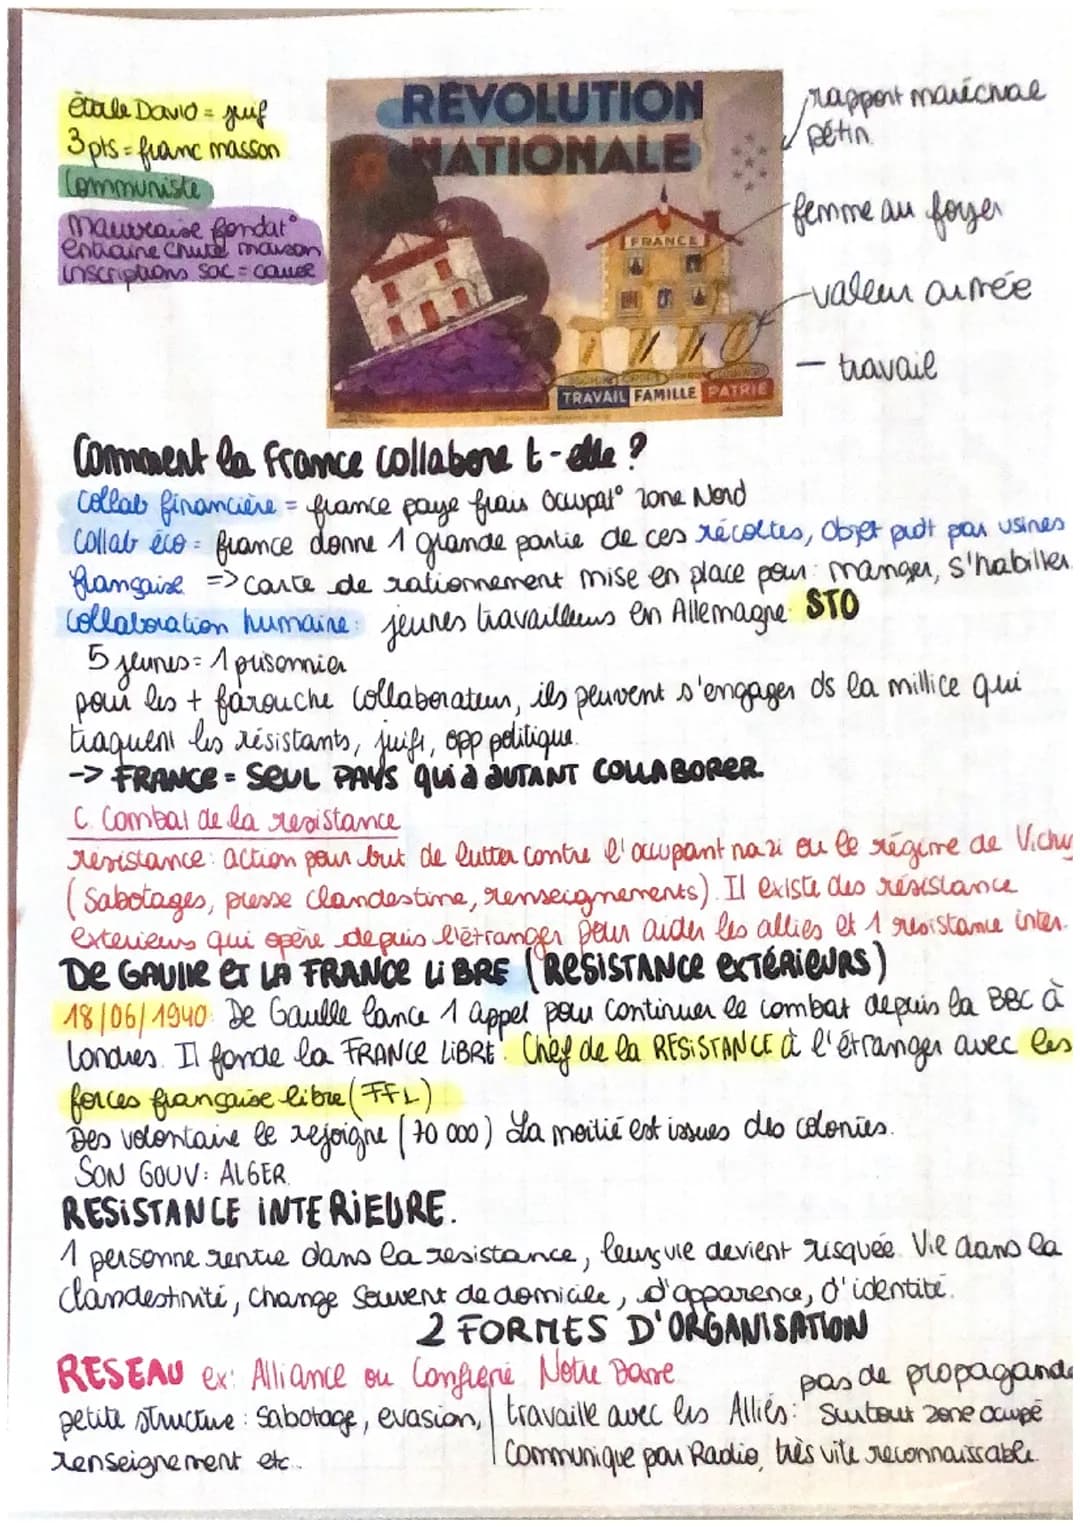 étoile David = juif
3 pts = franc masson
Communiste
Mauvaise fondat°
entraine chute maison
inscriptions sac = cause
RÉVOLUTION
NATIONALE
FRANCE
TRAVAIL FAMILLE PATRIE
rapport maréchal
pétin
femme au foyer
valeur armée
- travail
Comment la France collabore t-elle ?
Collab financière = france paye frais occupat° zone Nord
Collab éco = france donne 1 grande partie de ces récoltes, objet prdt par usines
française => carte de rationnement mise en place pour : manger, s'habiller
Collaboration humaine : jeunes travailleurs en Allemagne. STO
5 jeunes = 1 prisonnier
pour les + farouche collaborateur, ils peuvent s'engager ds la millice qui
traquent les résistants, juifs, opp politique.
-> FRANCE = SEUL PAYS qui a AUTANT COLLABORER
C. Combat de la resistance
résistance : action pour but de lutter contre l'occupant nazi ou le régime de Vichy
(Sabotages, presse clandestine, renseignements). Il existe des résistance
exterieurs qui opère depuis l'étranger pour aider les allies et 1 resistance inter.
DE GAULLE ET LA FRANCE LIBRE (RESISTANCE EXTÉRIEURS)
18/06/1940 : De Gaulle lance 1 appel pour continuer le combat depuis la BBC à
Londres. Il fonde la FRANCE LIBRE. Chef de la RESISTANCE à l'étranger avec les
forces française libre (FFL)
Des volontaire le rejoigne (70 000) La moitié est issues des colonies.
SON GOUV : ALGER
RESISTANCE INTERIEURE.
1 personne rentre dans la resistance, leurs vie devient risquée. Vie dans la
clandestinité, change souvent de domicile, d'apparence, d'identité.
2 FORMES D'ORGANISATION
RESEAU ex : Alliance ou Confrerie Notre Dame
pas de propagande
petite structure : Sabotage, evasion, travaille avec les Alliés : Surtout zone occupé
renseignement etc.. Communique par Radio, très vite reconnaissable.